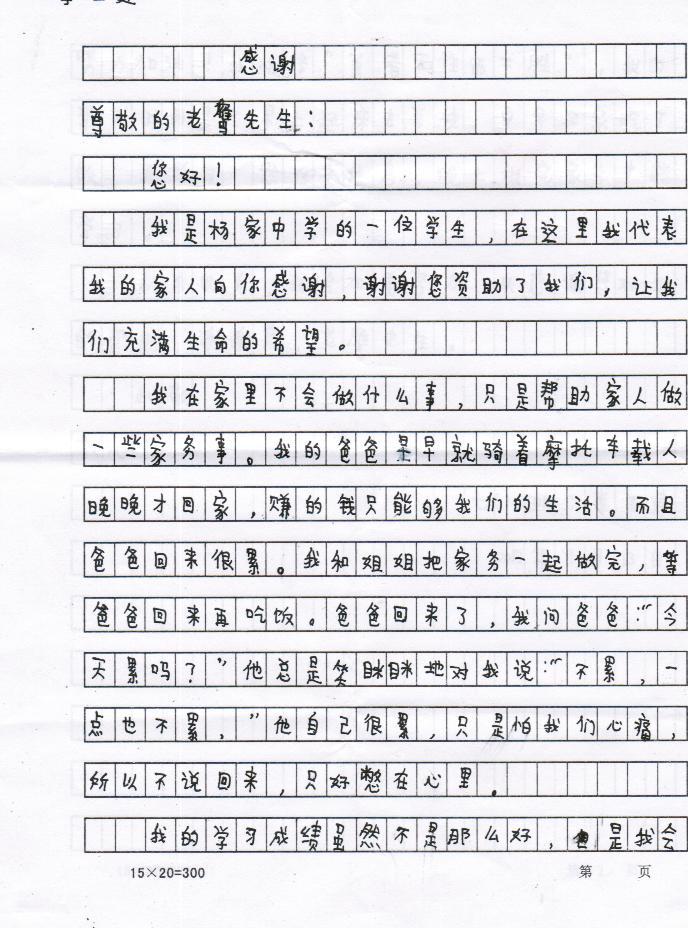 感谢
尊敬的老先生：
您好！
我是杨家中学的一位学生，在这里我代表
我的家人向你感谢，谢谢您资助了我们，让我
们充满生命的希望。
我在家里不会做什么事，只是帮助家人做
一些家务事。我的爸爸是早就骑着摩托车载人
晚晚才回家，赚的钱只能够我们的生活。而且
爸爸回来很累。我和姐姐把家务一起做完，等
爸爸回来再吃饭。爸爸回来了，我问爸爸：“今
天累吗？”他总是笑眯眯地对我说：“不累，一
点也不累，”他自己很累，只是怕我们心痛，
所以不说回来，只好憋在心里。
我的学习成绩虽然不是那么好，但是我会
15×20=300
第 页